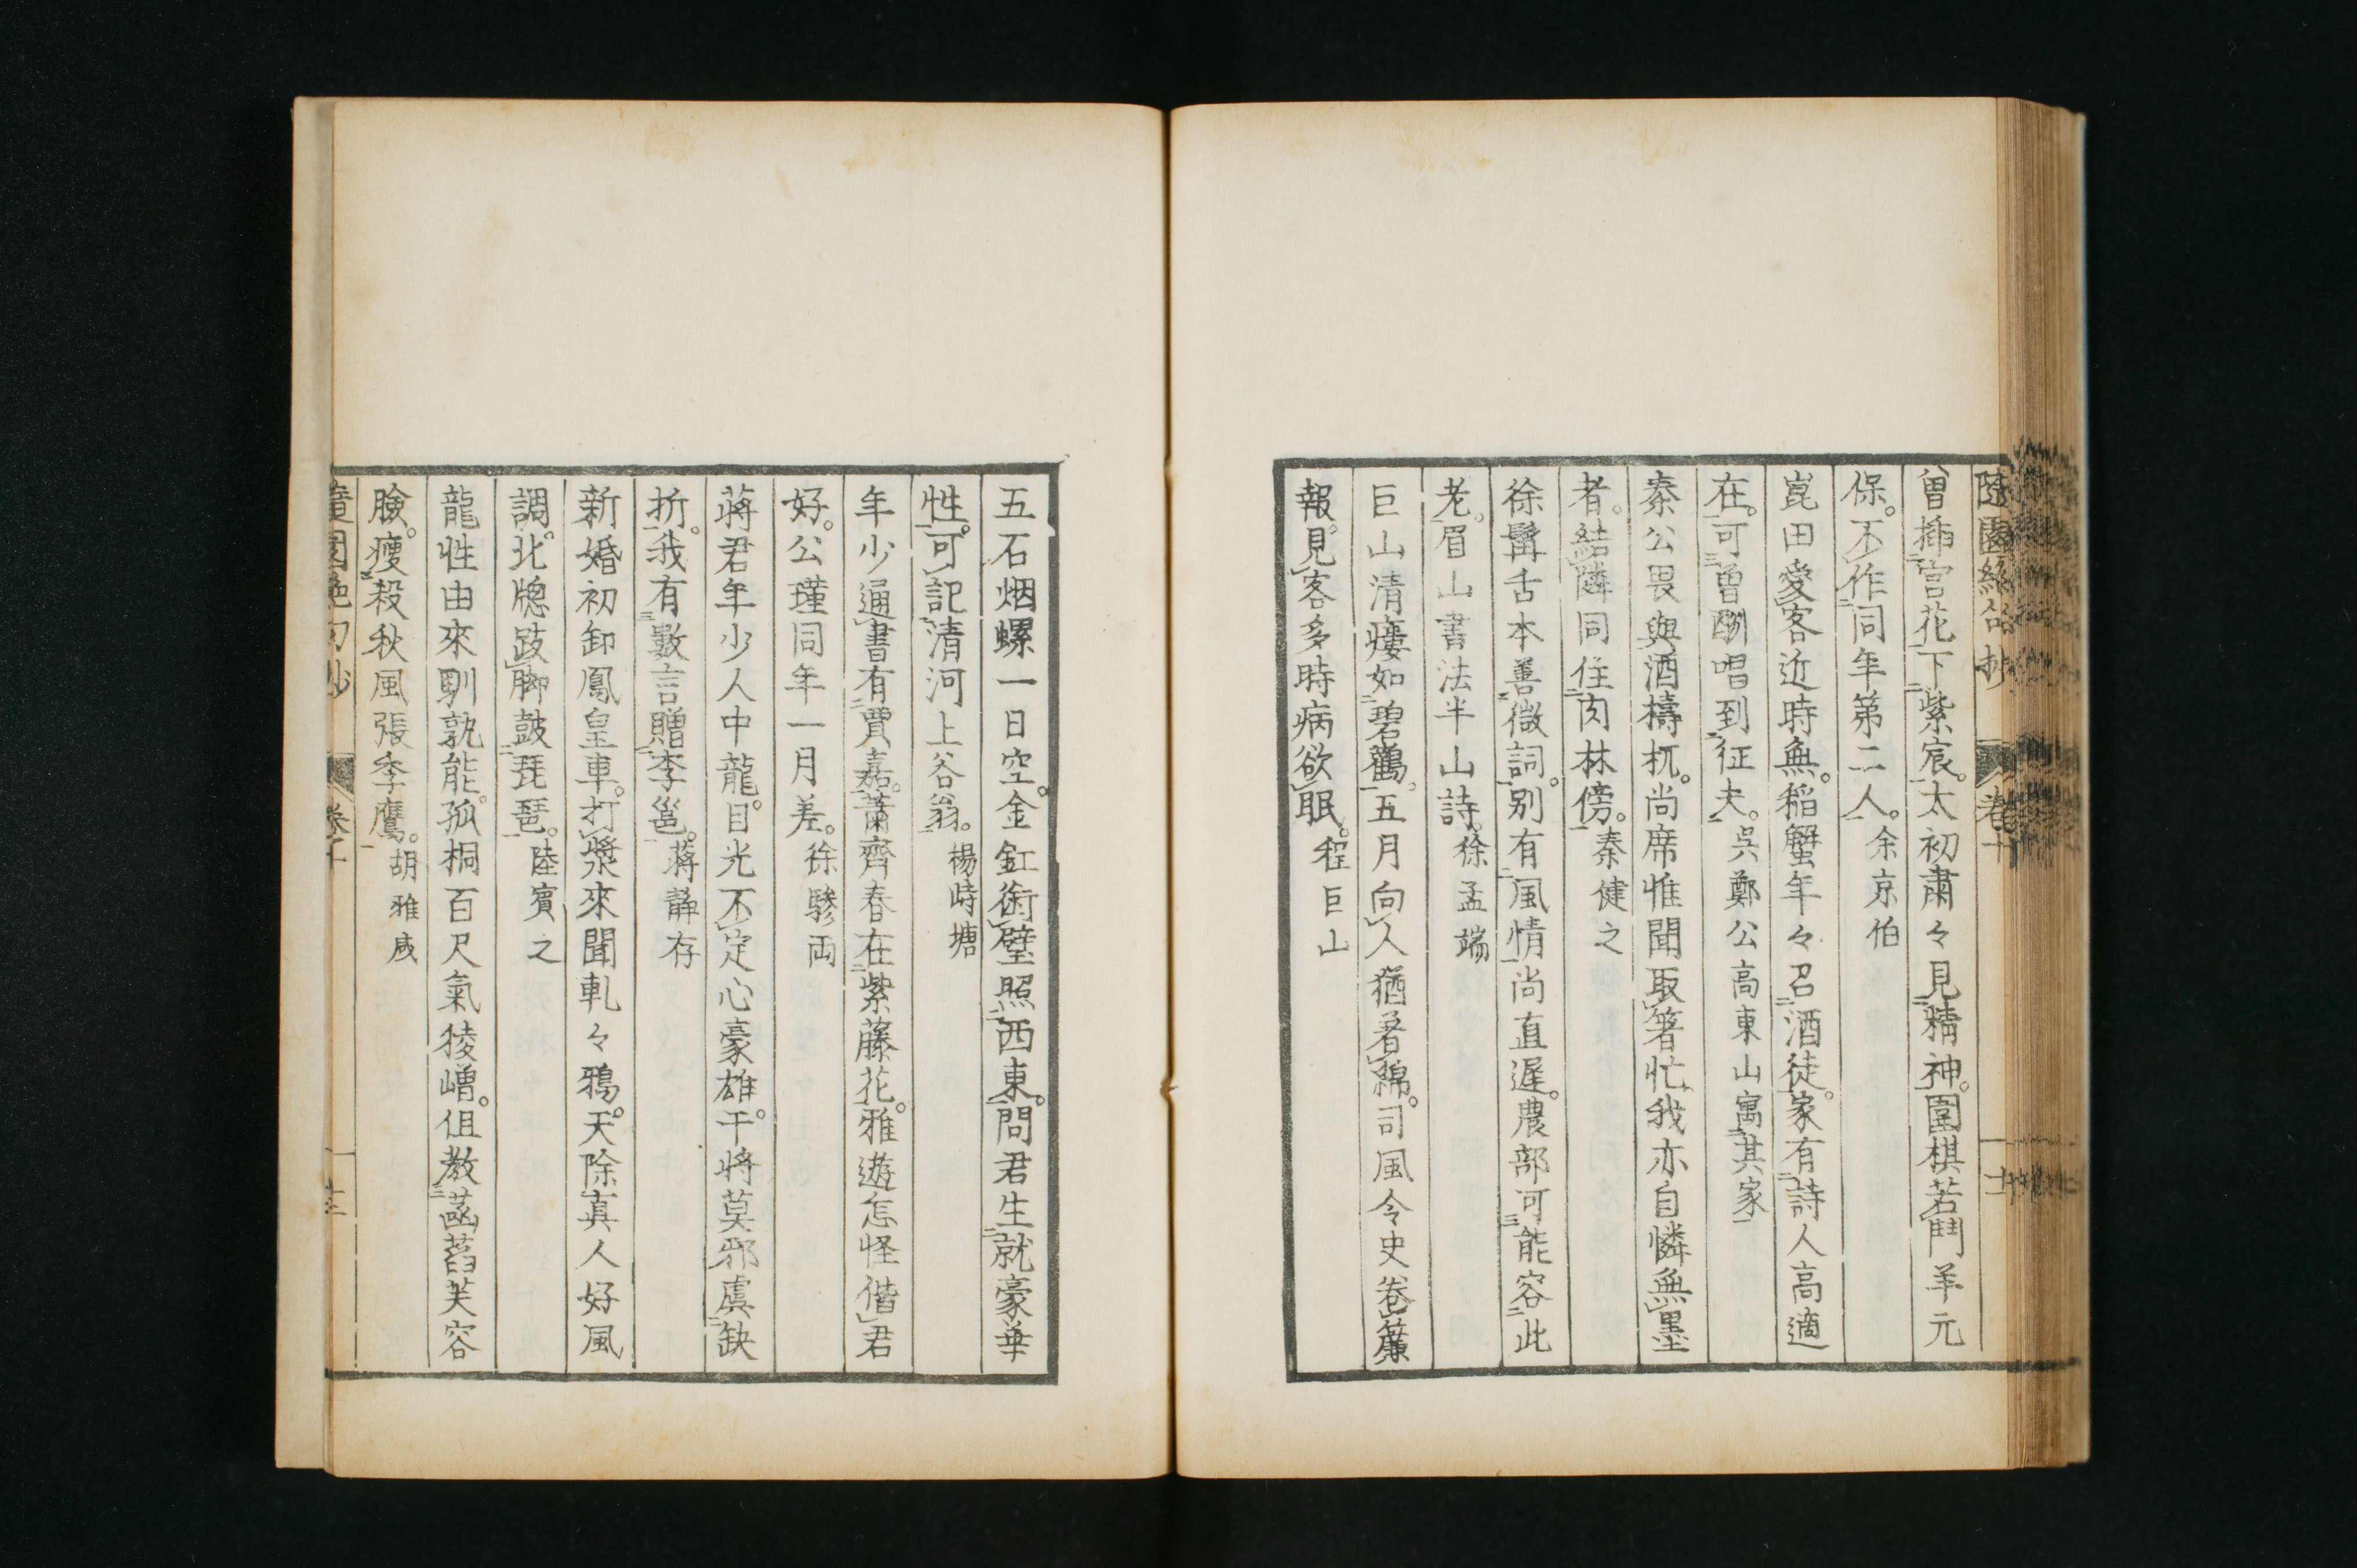 隨園絶句抄 卷十 十二
曾插宮花下紫宸。太初肅々見精神。圍棋若鬥羊元
保。不作同年第二人。余京伯
崑田愛客近時無。稻蟹年々召酒徒。家有詩人高適
在。可曾酬唱到征夫。吳鄭公高東山寓其家
秦公畏與酒檮杌。尚席惟聞取箸忙。我亦自憐無墨
者。結隣同住肉林傍。秦健之
徐髯舌本善微詞。別有風情尚直遲。農部可能容此
老。眉山書法半山詩。徐孟端
巨山清瘻如碧鸛。五月向人猶著綿。司風令史卷簾
報。見客多時病欲眠。程巨山
五石烟螺一日空。金釭銜壁照西東。問君生就豪華
性。可記清河上谷翁。楊時塘
年少通書有賈嘉。蕭齊春在紫藤花。雅遊怎怪偕君
好。公瑾同年一月差。徐驂両
蔣君年少人中龍。目光不定心豪雄。干將莫邪虞缺
折。我有數言贈李邕。蔣靜存
新婚初卸鳳皇車。打槳來聞軋々鴉。天除真人好風
調。北牕跂脚鼓琵琶。陸賓之
龍性由來馴孰能。孤桐百尺氣稜嶒。但教菡萏芙容
臉。瘦殺秋風張季鷹。胡雅咸
隨園絶句抄 卷十